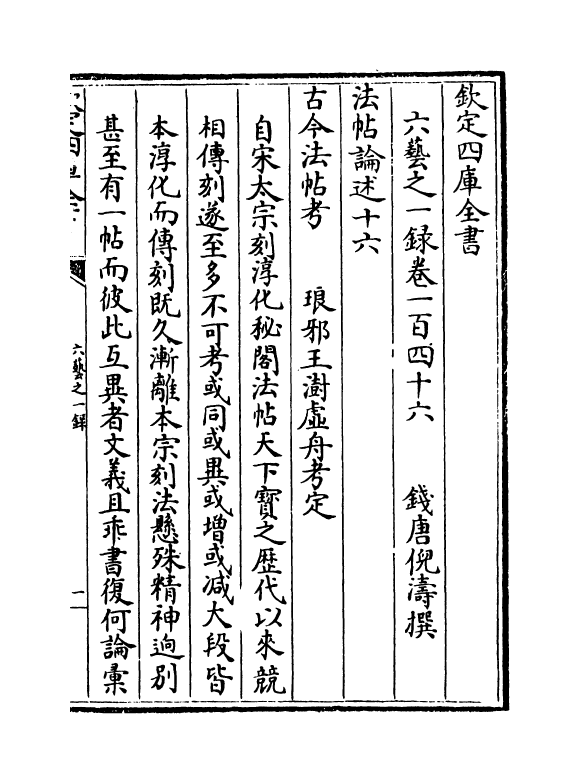 欽定四庫全書
六藝之一録卷一百四十六
錢唐倪濤撰
法帖論述十六
古今法帖考
琅邪王澍虛舟考定
自宋太宗刻淳化秘閣法帖天下寳之歴代以來競
相傳刻遂至多不可考或同或異或增或減大段皆
本淳化而傳刻既久漸離本宗刻法懸殊精神逈別
甚至有一帖而彼此互異者文義且乖書復何論彚
六藝之一錄
一